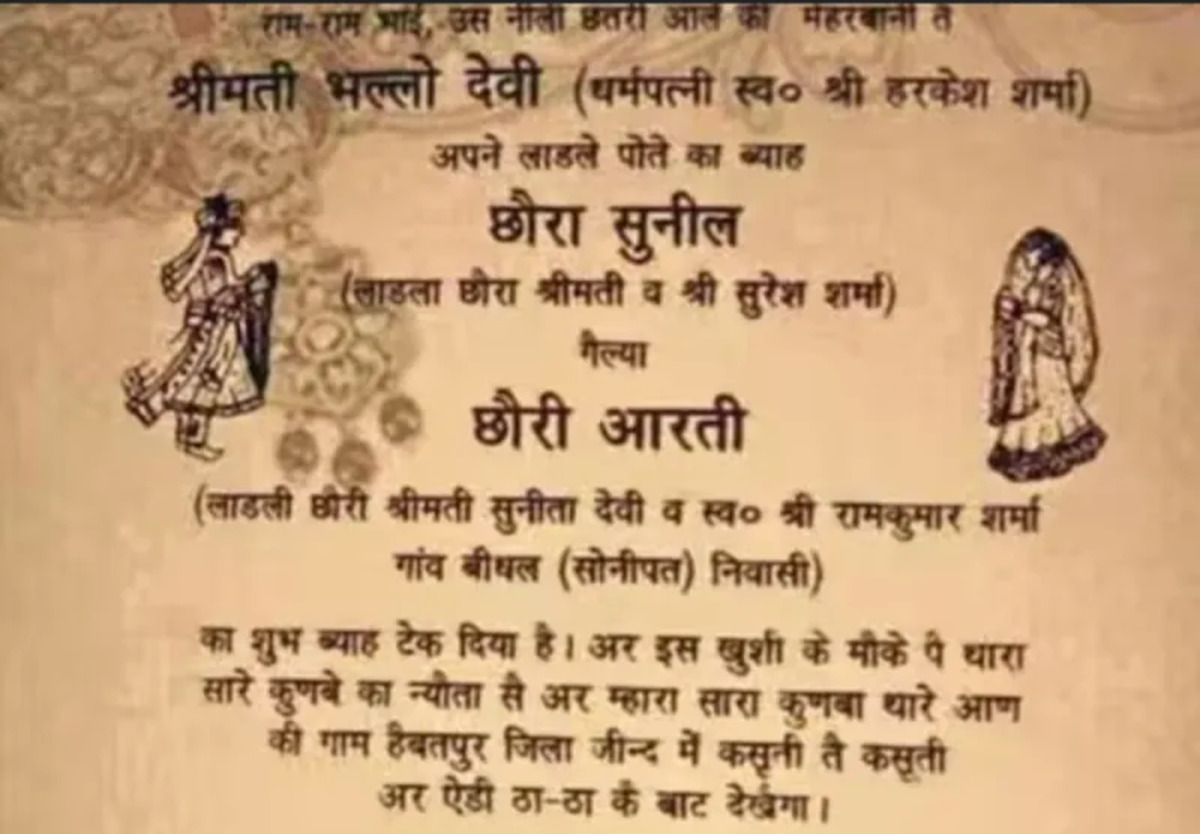 राम-राम भाई, उस नीली छतरी आले की मेहरबानी तै
श्रीमती भल्लो देवी (धर्मपत्नी स्व० श्री हरकेश शर्मा)
अपने लाडले पोते का ब्याह
छौरा सुनील
(लाडला छौरा श्रीमती व श्री सुरेश शर्मा)
गैल्या
छौरी आरती
(लाडली छौरी श्रीमती सुनीता देवी व स्व० श्री रामकुमार शर्मा
गांव बीधल (सोनीपत) निवासी)
का शुभ ब्याह टेक दिया है। अर इस खुशी के मौके पै थारा
सारे कुणबे का न्यौता सै अर म्हारा सारा कुणबा थारे आण
की गाम हैबतपुर जिला जीन्द में कसूती तै कसूती
अर ऐडी ठा-ठा कै बाट देखैगा।